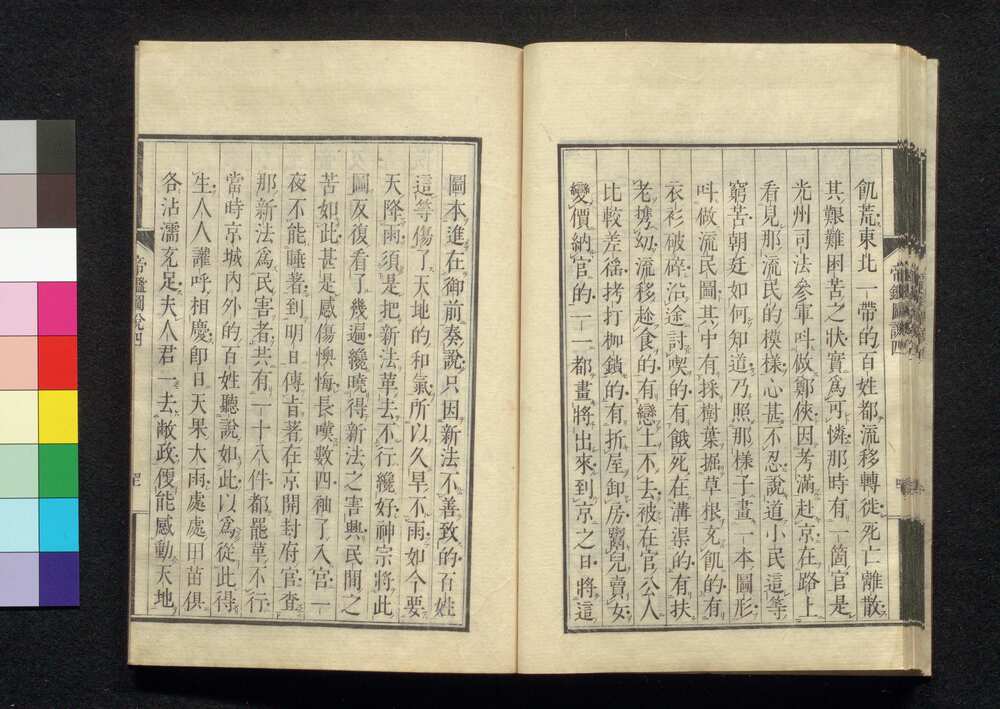 飢荒東北一帶的百姓都流移轉徙死亡離散
其艱難困苦之狀實爲可憐那時有一箇官是
光州司法參軍呌做鄭俠因考滿赴京在路上
看見那流民的模樣心甚不忍說道小民這等
窮苦朝廷如何知道乃照那樣子畫一本圖形
呌做流民圖其中有採樹葉掘草根充飢的有
衣衫破碎沿途討喫的有餓死在溝渠的有扶
老擕幼流移趂食的有戀土不去被在官公人
比較差徭拷打枷鎖的有折屋卸房鬻兒賣女
變價納官的一一都畫將出來到京之日將這
圖本進在御前奏說只因新法不善致的百姓
這等傷了天地的和氣所以久旱不雨如今要
天降雨須是把新法革去不行纔好神宗將此
圖反復看了幾遍纔曉得新法之害與民間之
苦如此甚是感傷懊悔長嘆數四袖了入宫一
夜不能睡著到明日傳旨著在京開封府官查
那新法爲民害者共有一十八件都罷革不行
當時京城內外的百姓聽說如此以爲從此得
生人人讙呼相慶卽日天果大雨處處田苗俱
各沾濡充足夫人君一去敝政便能感動天地
帝鑑圖說四
帝鑑圖說四